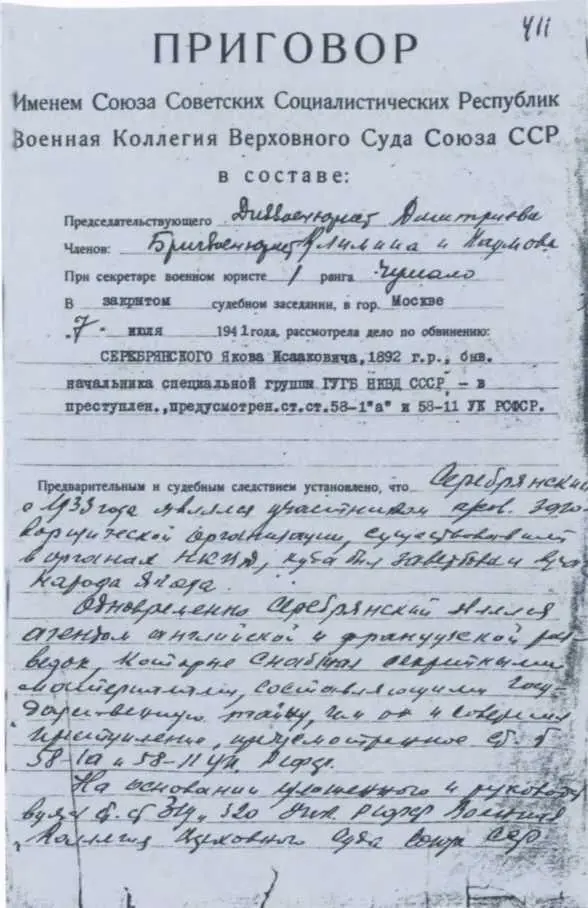 411
ПРИГОВОР
Именем Союза Советских Социалистических Республик
Военная Коллегия Верховного Суда Союза ССР
в составе:
Председательствующего Диввоенюрист Дмитриева
Членов: Бригвоенюрист Климина и Наумова
При секретаре военном юристе 1 ранга Чумало
В закрытом судебном заседании, в гор. Москве
„7" июля 1941 года, рассмотрела дело по обвинению:
СЕРЕБРЯНСКОГО Якова Исааковича, 1892 г.р., быв.
начальника специальной группы ГУГБ НКВД СССР, - в
преступлен.,предусмотрен.ст.ст.58-1"а" и 58-11 УК РСФСР.
Предварительным и судебным следствием установлено, что Серебрянский
с 1933 года являлся участником заго-
ворщической организации, существовавшей
в органах НКВД, куда был завербован врагом
народа Ягода.
Одновременно Серебрянский являлся
агентом английской и французской раз-
ведок, которые снабжал секретными
материалами, составляющими госу-
дарственную тайну, чем он и совершил
преступление, предусмотренное ст. ст.
58-1а и 58-11 УК РСФСР.
На основании изложенного и руководст-
вуясь ст. ст. 319, 320 УПК РСФСР Военная
Коллегия Верховного Суда Союза ССР